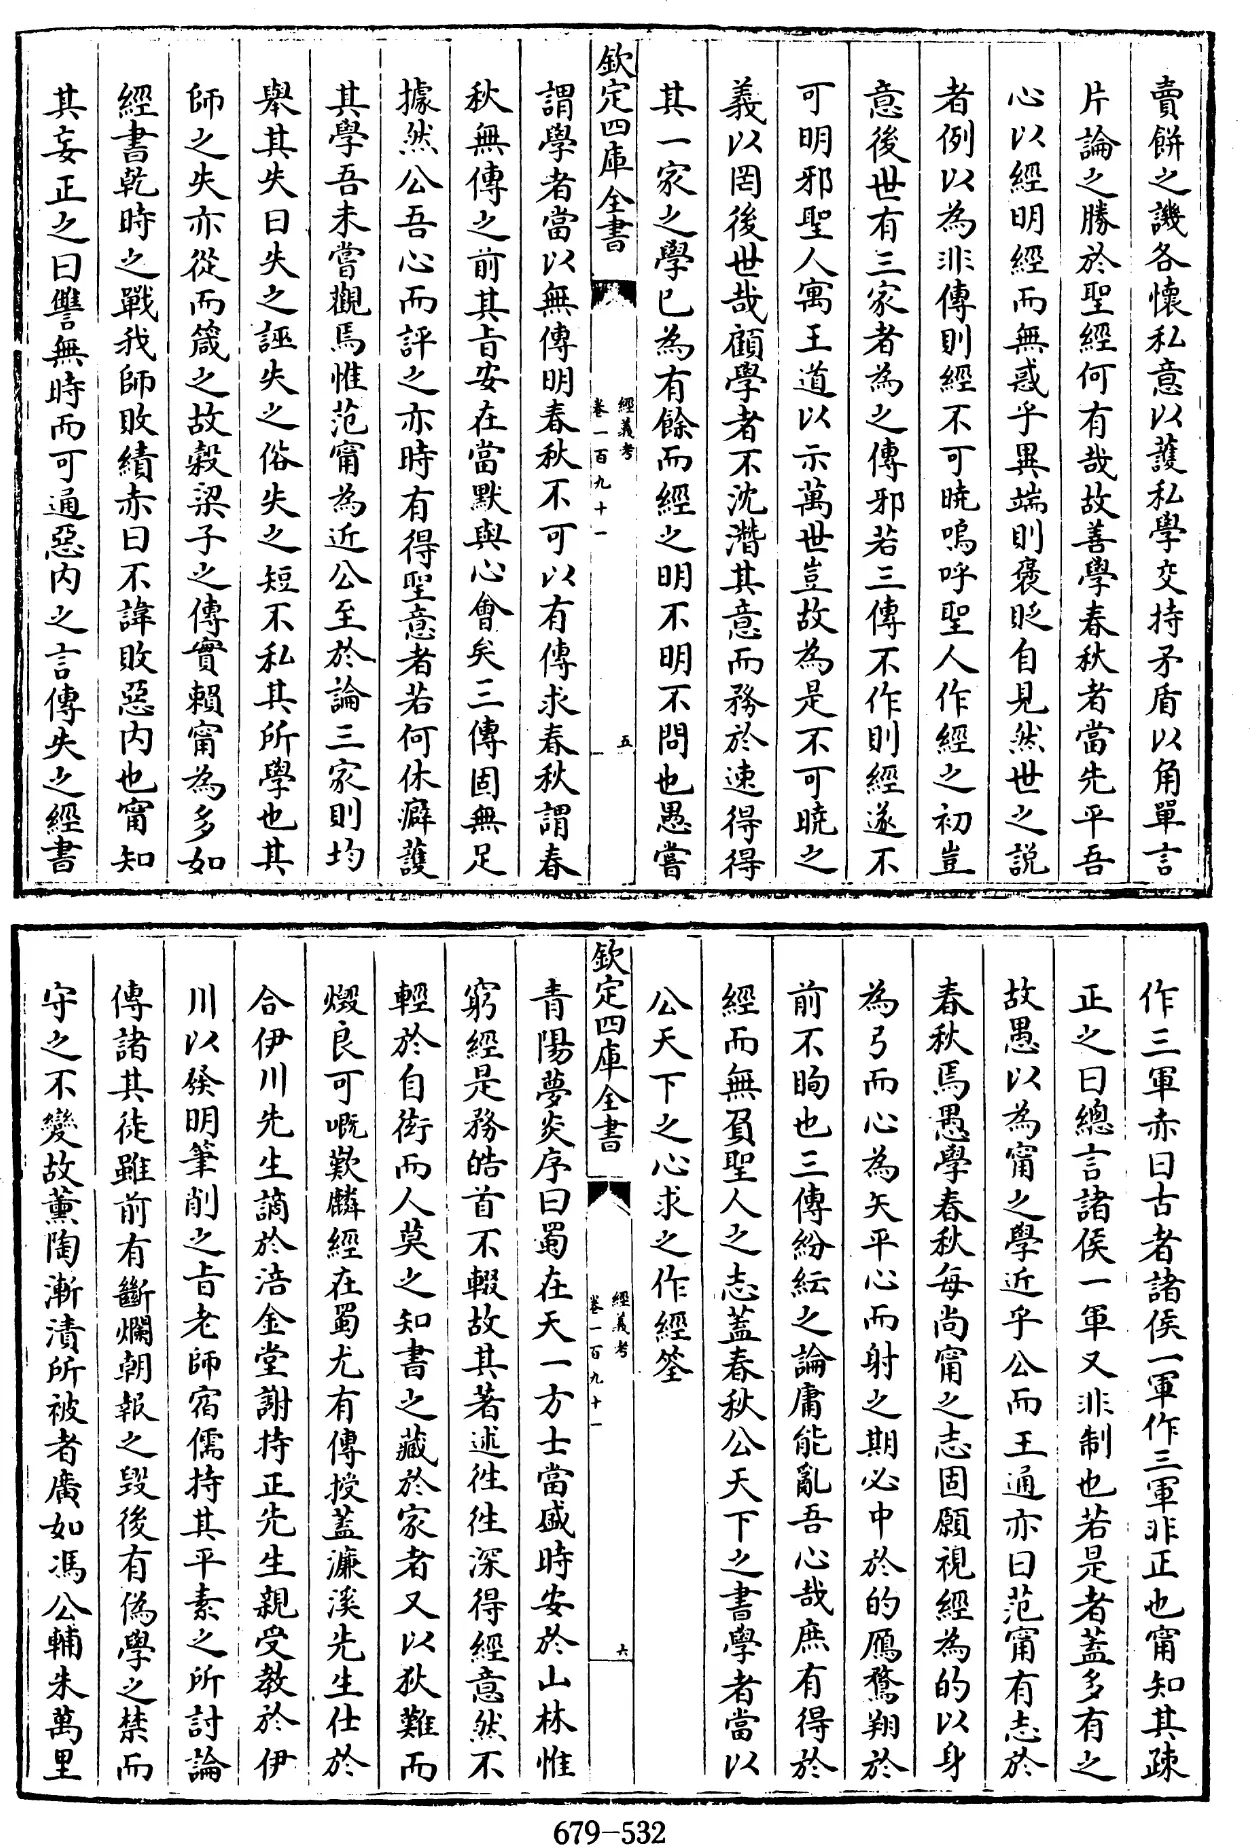 賣餅之譏各懷私意以護私學交持矛盾以角單言
片論之勝於聖經何有哉故善學春秋者當先平吾
心以經明經而無惑乎異端則褒貶自見然世之説
者例以為非傳則經不可曉嗚呼聖人作經之初豈
意後世有三家者為之傳邪若三傳不作則經遂不
可明邪聖人寓王道以示萬世豈故為是不可曉之
義以罔後世哉顧學者不沈潛其意而務於速得得
其一家之學已為有餘而經之明不明不問也愚嘗
欽定四庫全書
經義考
卷一百九十一
五
謂學者當以無傳明春秋不可以有傳求春秋謂春
秋無傳之前其旨安在當默與心會矣三傳固無足
據然公吾心而評之亦時有得聖意者若何休癖護
其學吾未嘗觀焉惟范甯為近公至於論三家則均
舉其失曰失之誣失之俗失之短不私其所學也其
師之失亦從而箴之故穀梁子之傳實賴甯為多如
經書乾時之戰我師敗績赤曰不諱敗惡内也甯知
其妄正之曰讐無時而可通惡内之言傳失之經書
作三軍赤曰古者諸侯一軍作三軍非正也甯知其疎
正之曰總言諸侯一軍又非制也若是者蓋多有之
故愚以為甯之學近乎公而王通亦曰范甯有志於
春秋焉愚學春秋每尚甯之志固願視經為的以身
為弓而心為矢平心而射之期必中於的鴈鶩翔於
前不眴也三傳紛紜之論庸能亂吾心哉庶有得於
經而無負聖人之志蓋春秋公天下之書學者當以
公天下之心求之作經筌
欽定四庫全書
經義考
卷一百九十一
六
青陽夢炎序曰蜀在天一方士當盛時安於山林惟
窮經是務皓首不輟故其著述徃徃深得經意然不
輕於自衒而人莫之知書之藏於家者又以狄難而
燬良可嘅歎麟經在蜀尤有傳授蓋濂溪先生仕於
合伊川先生謫於涪金堂謝持正先生親受教於伊
川以發明筆削之旨老師宿儒持其平素之所討論
傳諸其徒雖前有斷爛朝報之毀後有偽學之禁而
守之不變故薰陶漸漬所被者廣如馮公輔朱萬里
679-532